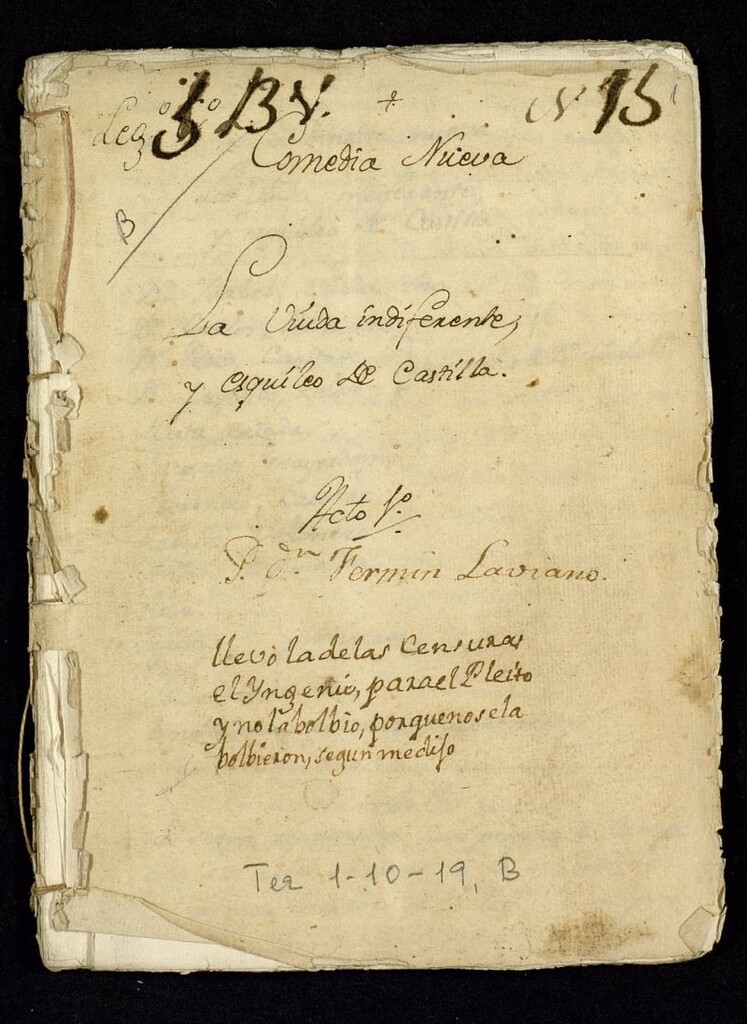 Leg.º 5 B V. + N 15
1
B
Comedia Nueva
La Viuda indiferente,
y esquileo de Castilla.
Acto 1.º
P. dn Fermin Laviano.
llevó la de las Censuras
el Yngenio, para el Pleito
y no la bolbio, porque no se la
bolbieron, segun me dijo
Tea 1-10-19, B